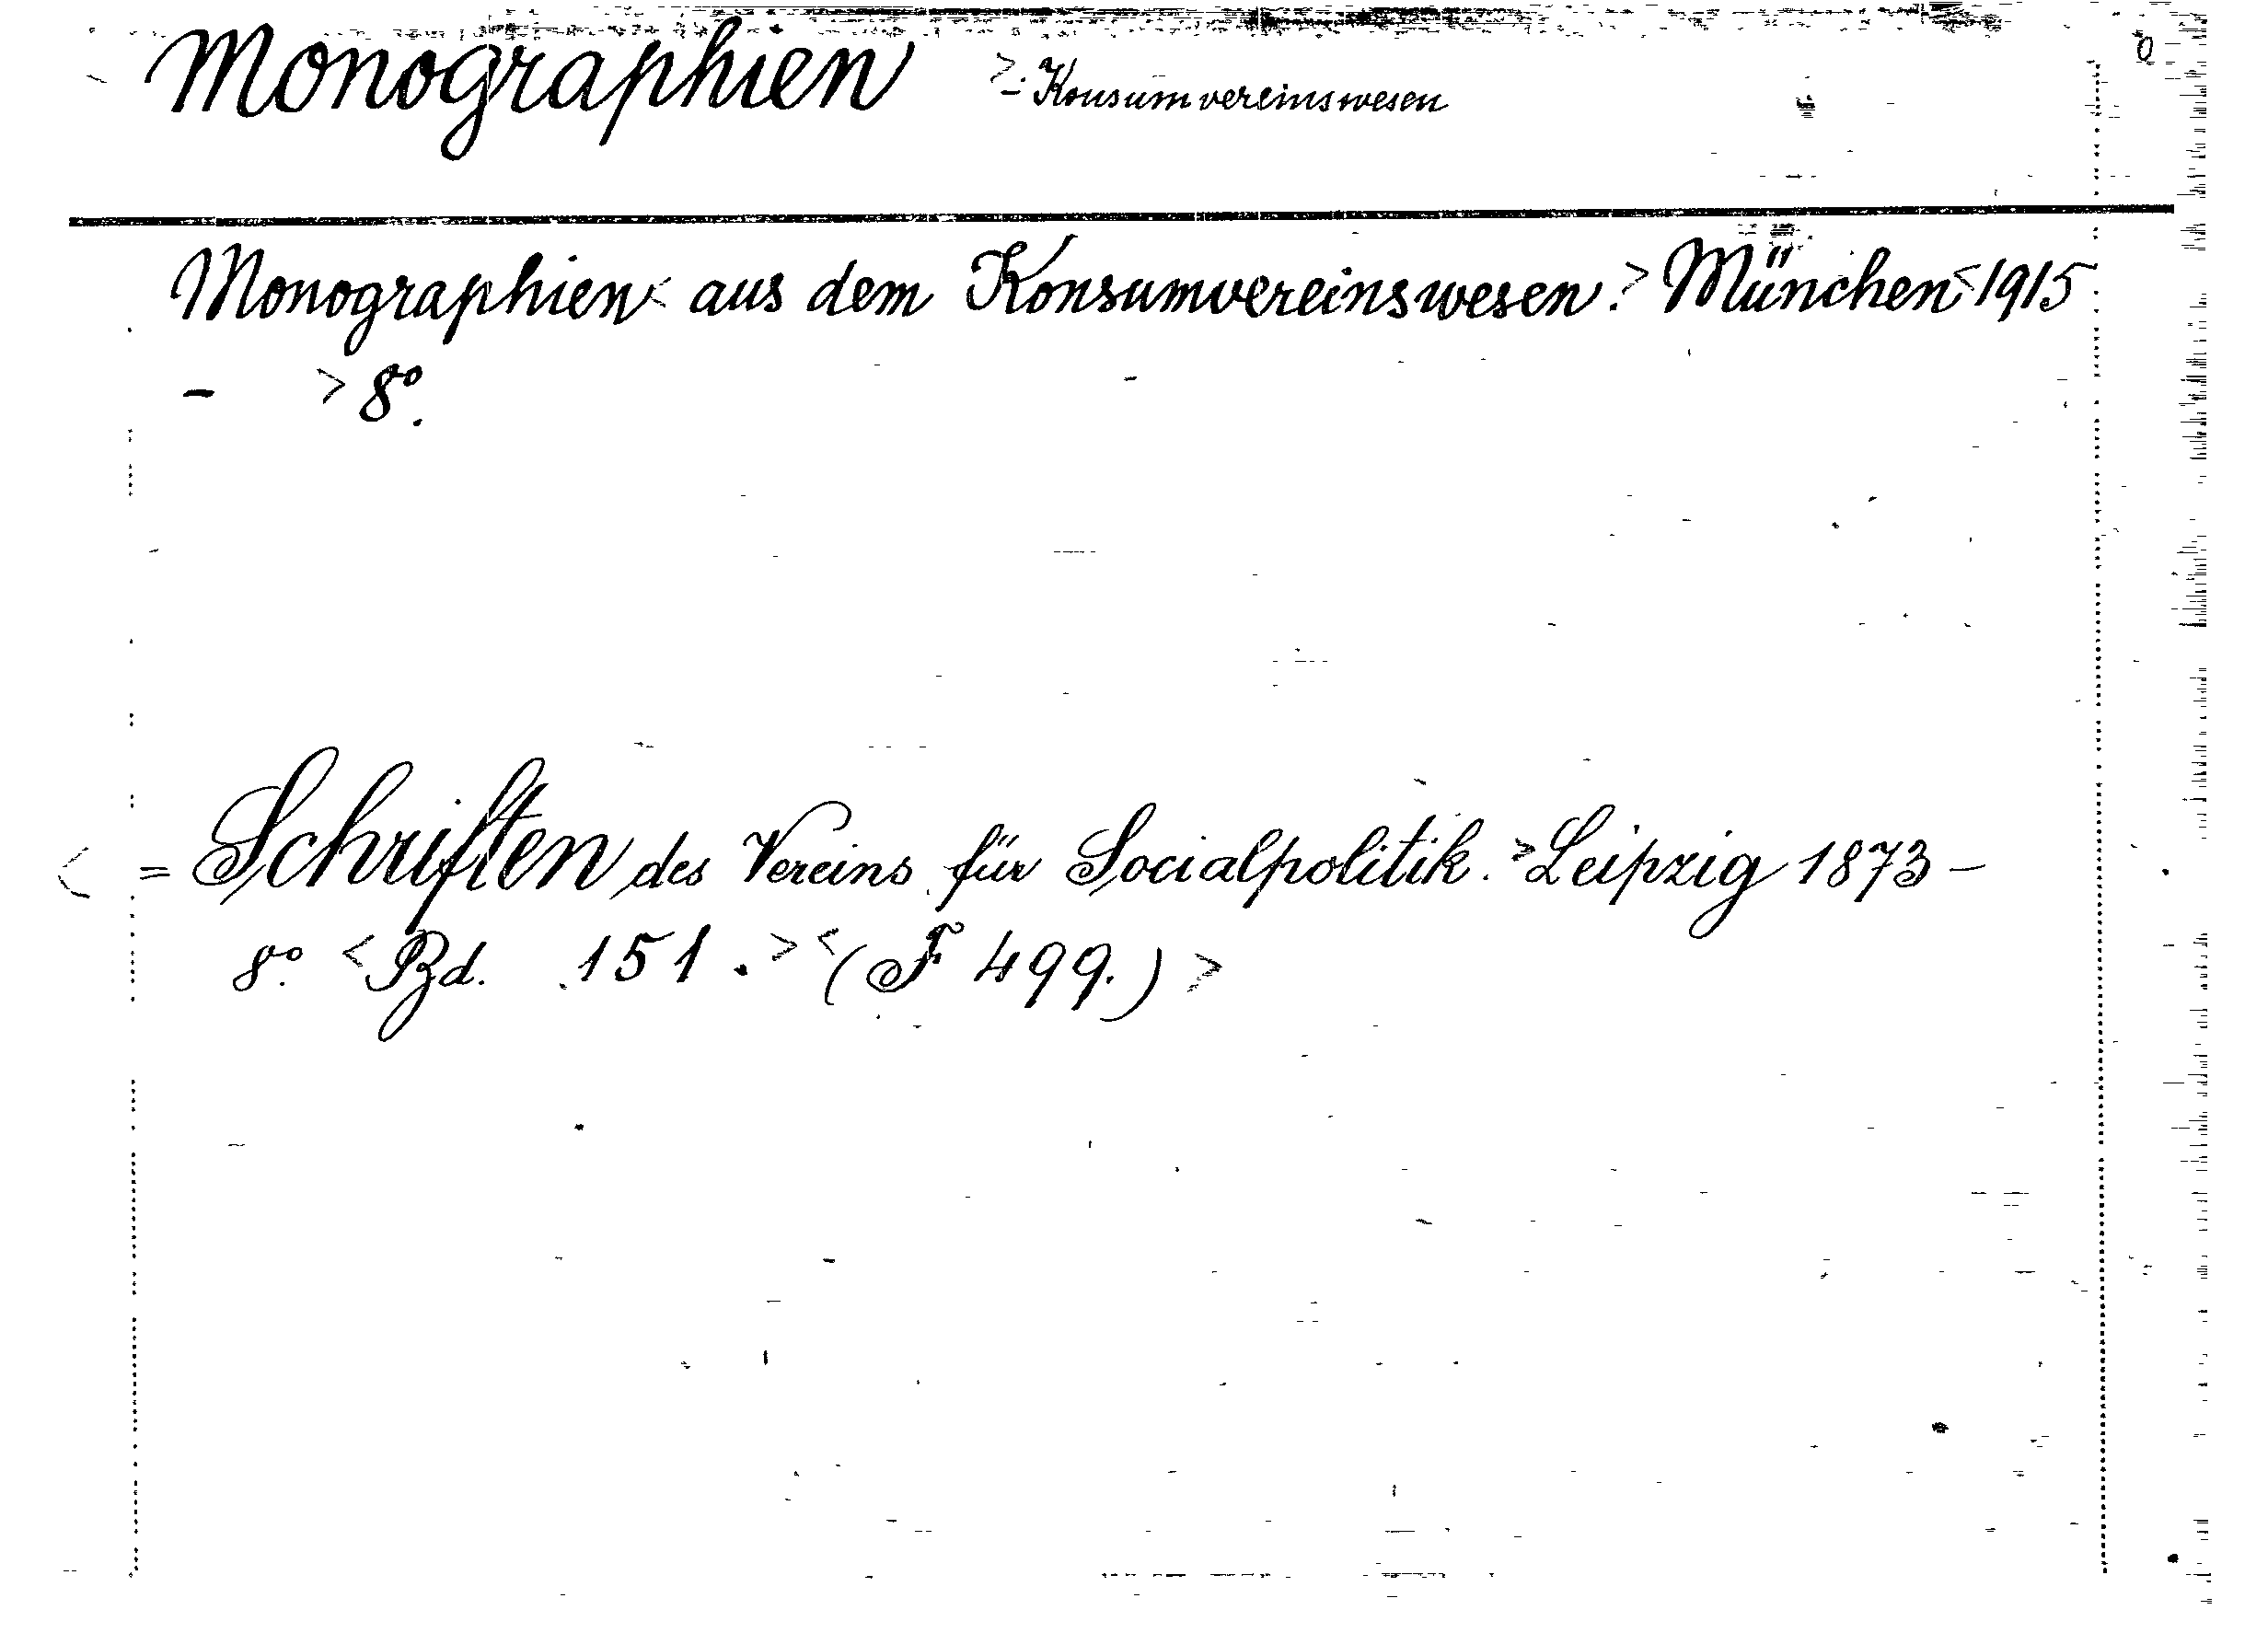 Monographien >- Konsumvereinswesen
Monographien < aus dem Konsumvereinswesen. > München < 1915
- > 8°.
< = Schriften des Vereins für Socialpolitik. > Leipzig 1873 -
8°. < Bd. 151. > < (F 499.) >